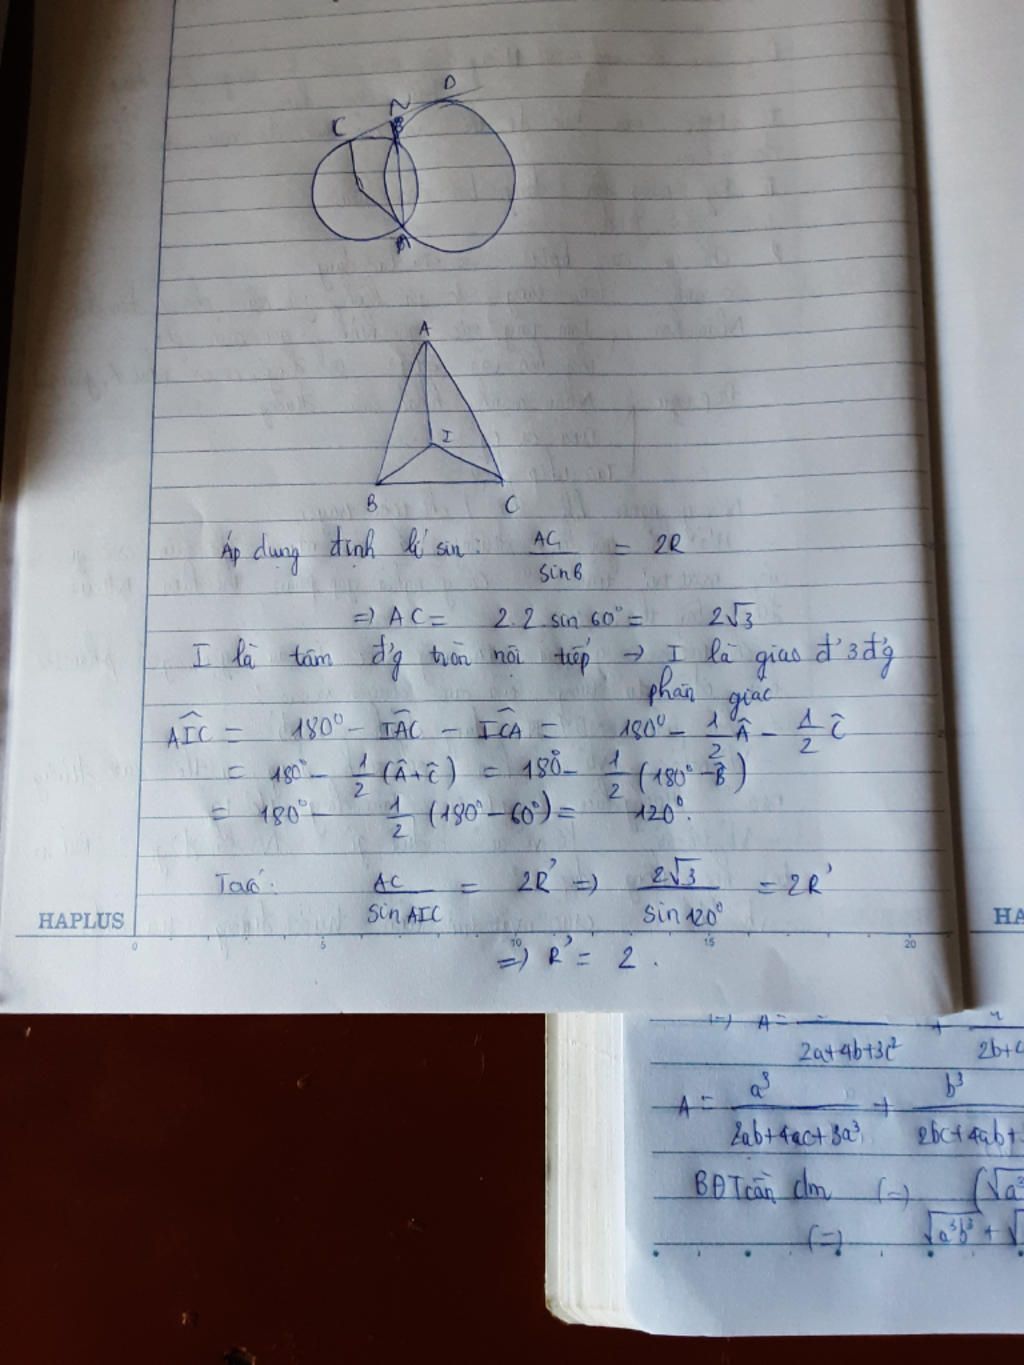 D
C
A
I
B C
Áp dụng định lí sin: AC/sinB = 2R
=> AC = 2.2.sin60° = 2√3
I là tâm đ'g tròn nội tiếp → I là giao đ' 3 đ'g
phân giác
AIC = 180° - IAC - ICA = 180° - 1/2 Â - 1/2 Ĉ
= 180° - 1/2 (Â+Ĉ) = 180° - 1/2 (180° - B̂)
= 180° - 1/2 (180° - 60°) = 120°.
Ta có: AC/sinAIC = 2R' => 2√3/sin120° = 2R'
HAPLUS HA
0 5 10 15 20
=> R' = 2.
2a+4b+3c² 2b+
A = a³/2ab+4ac+3a³ + b³/2bc+4ab+
BĐT cần cm (=) (√a³
(=) √a³b³ + √